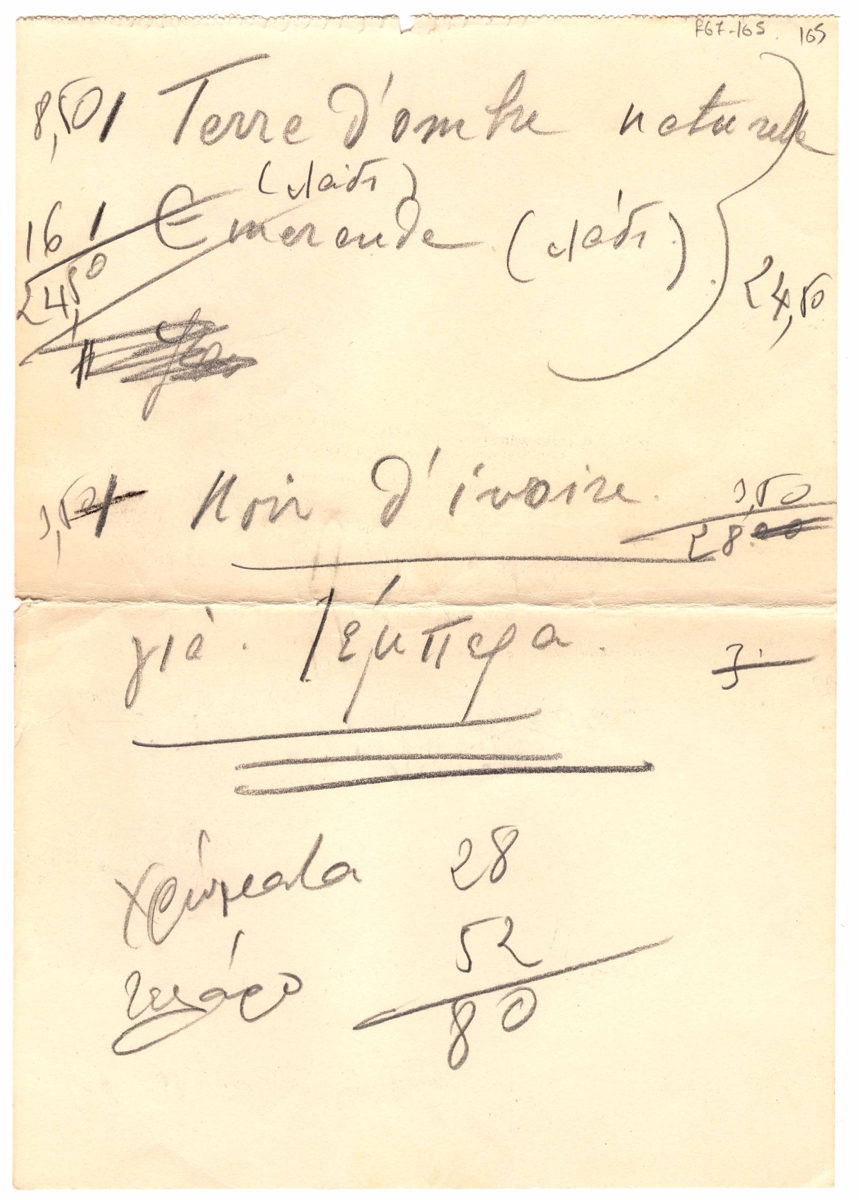 F67-165. 165
8,50 1 Terre d'ombre naturelle
(λάδι)
16 1 Emeraude (λάδι) 24,50
24,50
3,50 1 Noir d'ivoire. 3,50
28
γιά. Τέμπερα. 3.
χρώματα 28
τελάρο 52
80